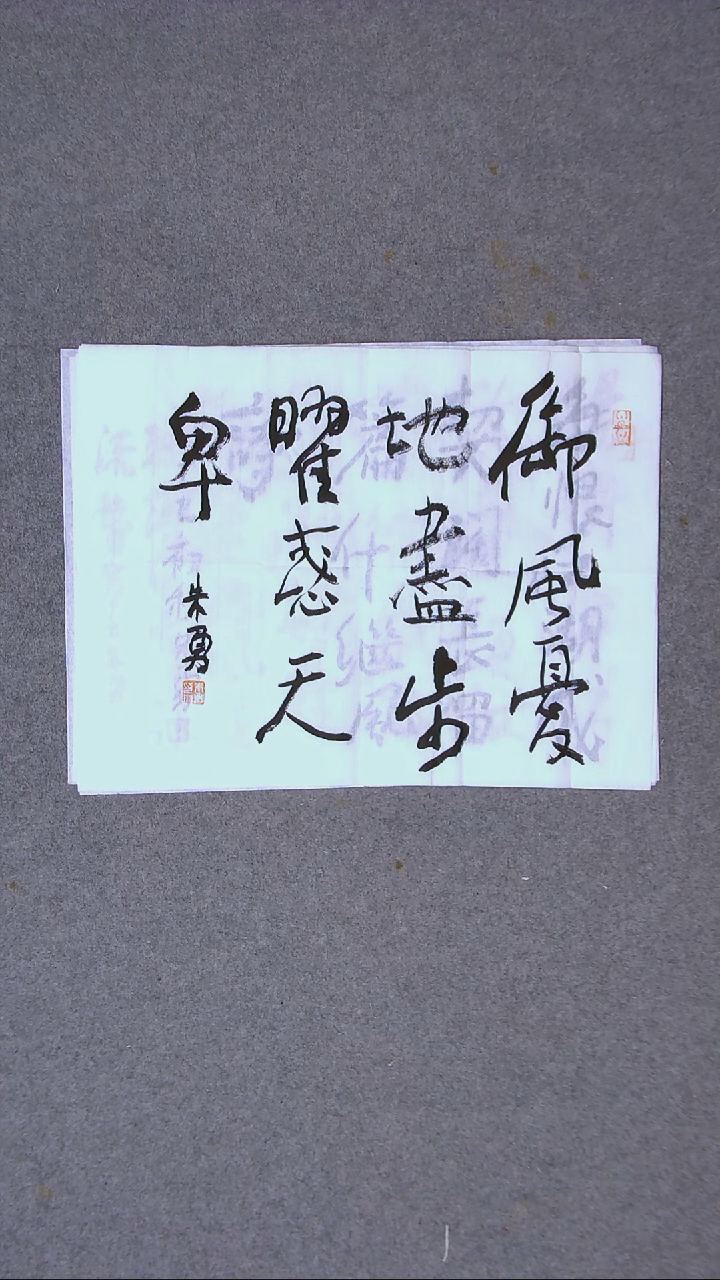 御風憂
地盡步
曜惑天
卑
朱勇